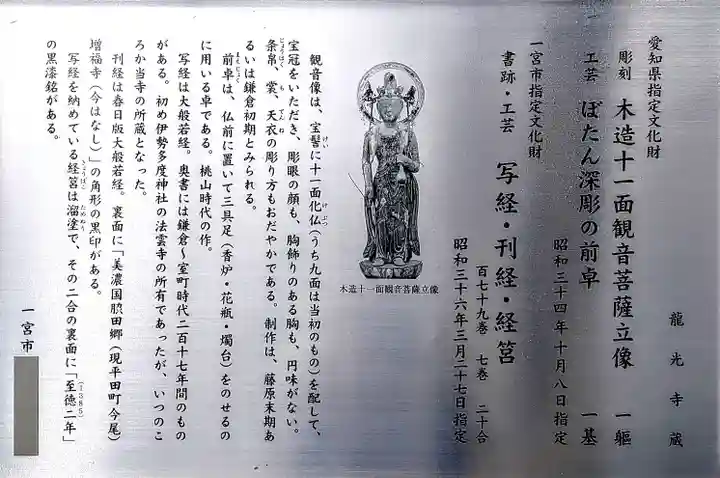 愛知県指定文化財
龍光寺蔵
彫刻 木造十一面観音菩薩立像 一軀
工芸 ぼたん深彫の前卓 一基
昭和三十四年十月八日指定
一宮市指定文化財
書跡・工芸 写経・刊経・経筥
百七十九巻 七巻 二十合
昭和三十六年三月二十七日指定
木造十一面観音菩薩立像
観音像は、宝髻に十一面化仏(うち九面は当初のもの)を配して、
宝冠をいただき、彫眼の顔も、胸飾りのある胸も、円味がない。
条帛、裳、天衣の彫り方もおだやかである。制作は、藤原末期あ
るいは鎌倉初期とみられる。
前卓は、仏前に置いて三具足(香炉・花瓶・燭台)をのせるの
に用いる卓である。桃山時代の作。
写経は大般若経。奥書には鎌倉~室町時代二百十七年間のもの
がある。初め伊勢多度神社の法雲寺の所有であったが、いつのこ
ろか当寺の所蔵となった。
刊経は春日版大般若経。裏面に「美濃国脇田郷(現平田町今尾)
増福寺(今はなし)」の角形の黒印がある。
写経を納めている経筥は溜塗で、その二合の裏面に「至徳二年」(1385)
の黒漆銘がある。
一宮市